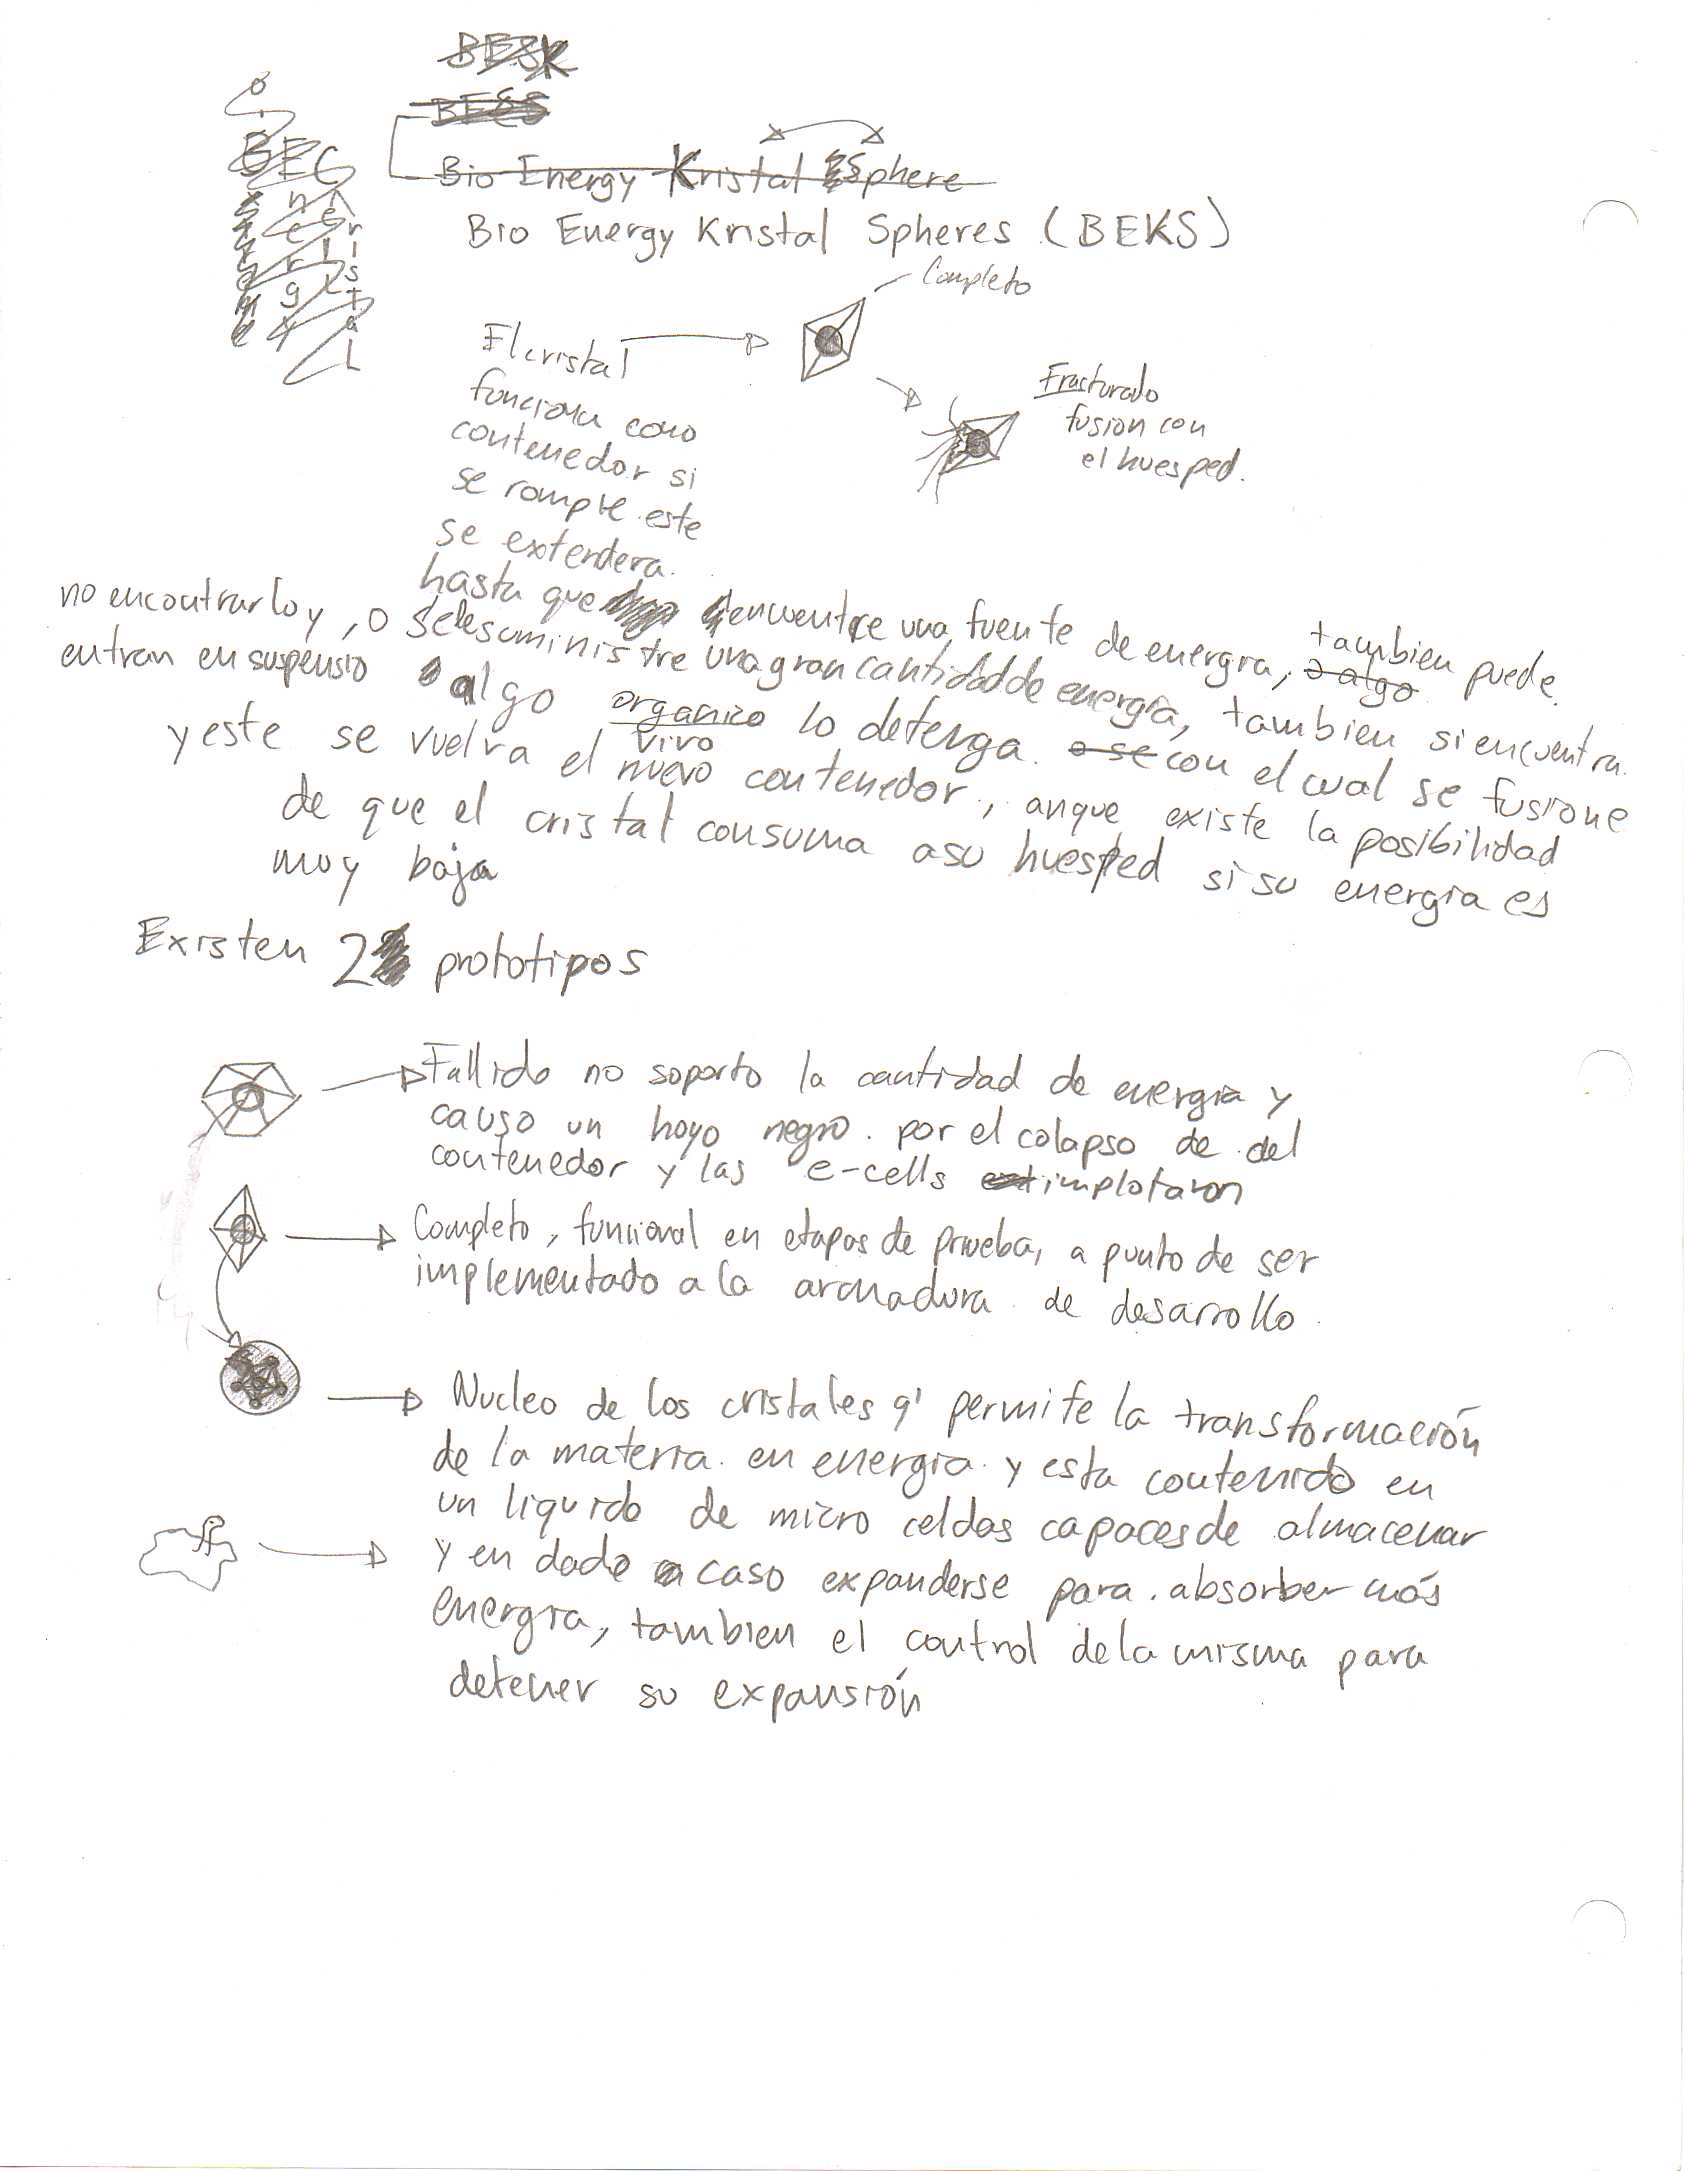 BESK
BESS
Bio Energy Kristal Sphere
Bio Energy Kristal Spheres (BEKS)
BEC
Completo
El cristal
funciona como
contenedor si
se rompe este
se extendera.
Fracturado
fusion con
el huesped.
hasta que encuentre una fuente de energia, o algo tambien puede
no encontrarlo y
entran en suspensio
, o se le suministre una gran cantidad de energia, tambien si encuentra
algo organico vivo lo detenga. o se con el cual se fusione
y este se vuelva el nuevo contenedor, anque existe la posibilidad
de que el cristal consuma a su huesped si su energia es
muy baja
Existen 2 prototipos
Fallido no soporto la cantidad de energia y
causo un hoyo negro. por el colapso de del
contenedor y las e-cells implotaron
Completo, funcional en etapas de prueba, a punto de ser
implementado a la armadura de desarrollo.
Nucleo de los cristales q' permite la transformación
de la materia en energia y esta contenido en
un liquido de micro celdas capaces de almacenar
y en dado caso expanderse para absorber más
energia, tambien el control de la misma para
detener su expansión